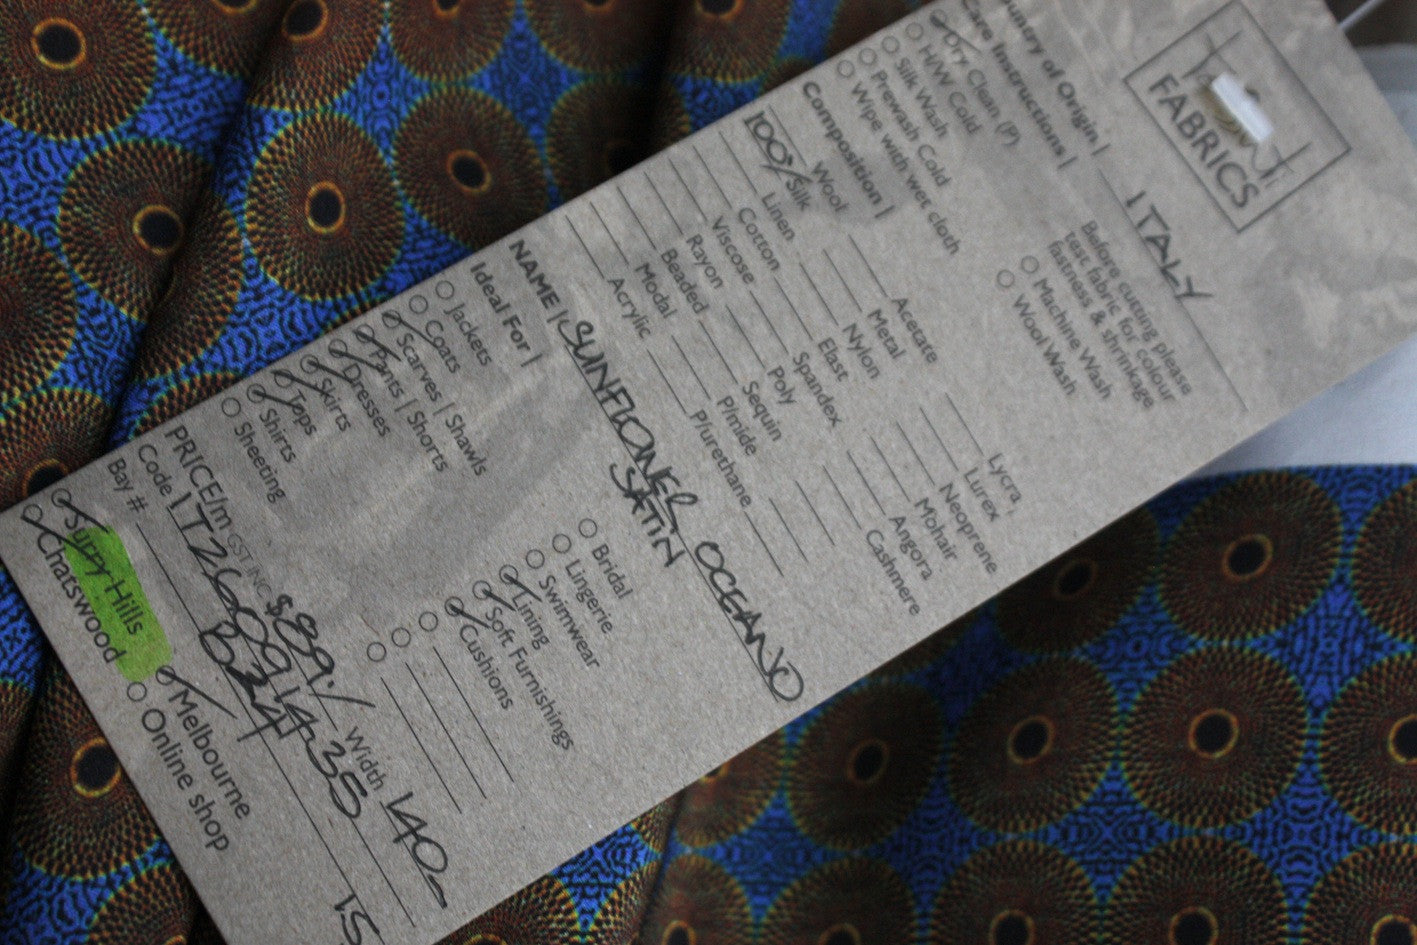 FABRICS
Country of Origin | ITALY
Care Instructions |
Dry Clean (P)
H/W Cold
Silk Wash
Prewash Cold
Wipe with wet cloth
Before cutting please
test fabric for colour
fastness & shrinkage
Machine Wash
Wool Wash
Composition |
Wool
100% Silk
Linen
Cotton
Viscose
Rayon
Beaded
Modal
Acrylic
Acetate
Metal
Nylon
Elast
Spandex
Poly
Sequin
P/mide
P/urethane
Lycra
Lurex
Neoprene
Mohair
Angora
Cashmere
NAME | SUNFLOWER OCEANO
SATIN
Ideal For |
Jackets
Coats
Scarves | Shawls
Pants | Shorts
Dresses
Skirts
Tops
Shirts
Sheeting
Bridal
Lingerie
Swimwear
Lining
Soft Furnishings
Cushions
PRICE/m GST INC $89./ Width 140
Code IT260914-35
Bay # B24 15
Surry Hills
Chatswood
Melbourne
Online shop